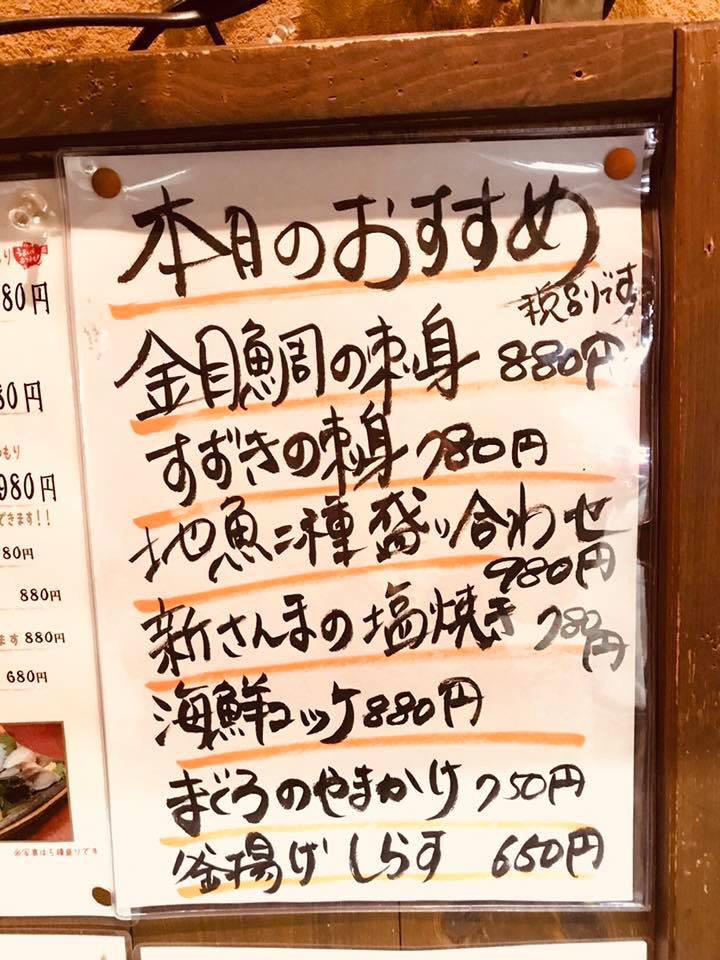 本日のおすすめ
税別です
金目鯛の刺身 880円
すずきの刺身 780円
地魚二種盛り合わせ
980円
新さんまの塩焼き 780円
海鮮ユッケ 880円
まぐろのやまかけ 750円
釜揚げしらす 650円
80円
80円
もり
980円
できます!!
80円
880円
ます 880円
680円
※写真は5種盛りです